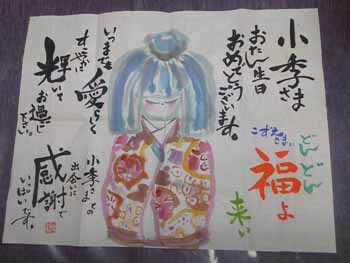 小季さま
おたん生日
おめでとうございます。
どんどん
福よ
来い
いつまでも愛らしく
すこやかに
輝いて
お過し
下さい。
小季さまとの
出会いに
感謝で
いっぱいです。